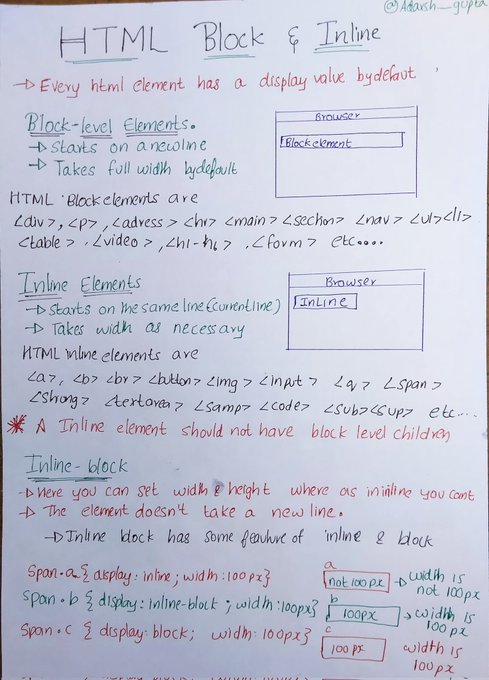 @Adarsh_gupta
HTML Block & Inline
→ Every html element has a display value bydefaut
Block-level Elements.
→ Starts on a newline
→ Takes full width bydefault
Browser
Block element
HTML Block elements are
<div>, <p>, <adress> <hr> <main> <section> <nav> <ul> <li>
<table>. <video>, <h1-h6>. <form> etc....
Inline Elements
→ Starts on the same line (current line)
→ Takes width as necessary
Browser
InLine
HTML inline elements are
<a>, <b> <br> <button> <img> <input> <q> <span>
<strong> <textarea> <samp> <code> <sub> <sup> etc....
* A Inline element should not have block level children
Inline-block
→ Here you can set width & height where as in inline you cant
→ The element doesn't take a new line.
→ Inline block has some feature of inline & block
span.a { display: inline; width: 100px}
a
not 100px
→ width is not 100px
span.b { display: inline-block; width: 100px}
b
100px
→ width is 100px
span.c { display: block; width: 100px}
c
100px
width is 100px